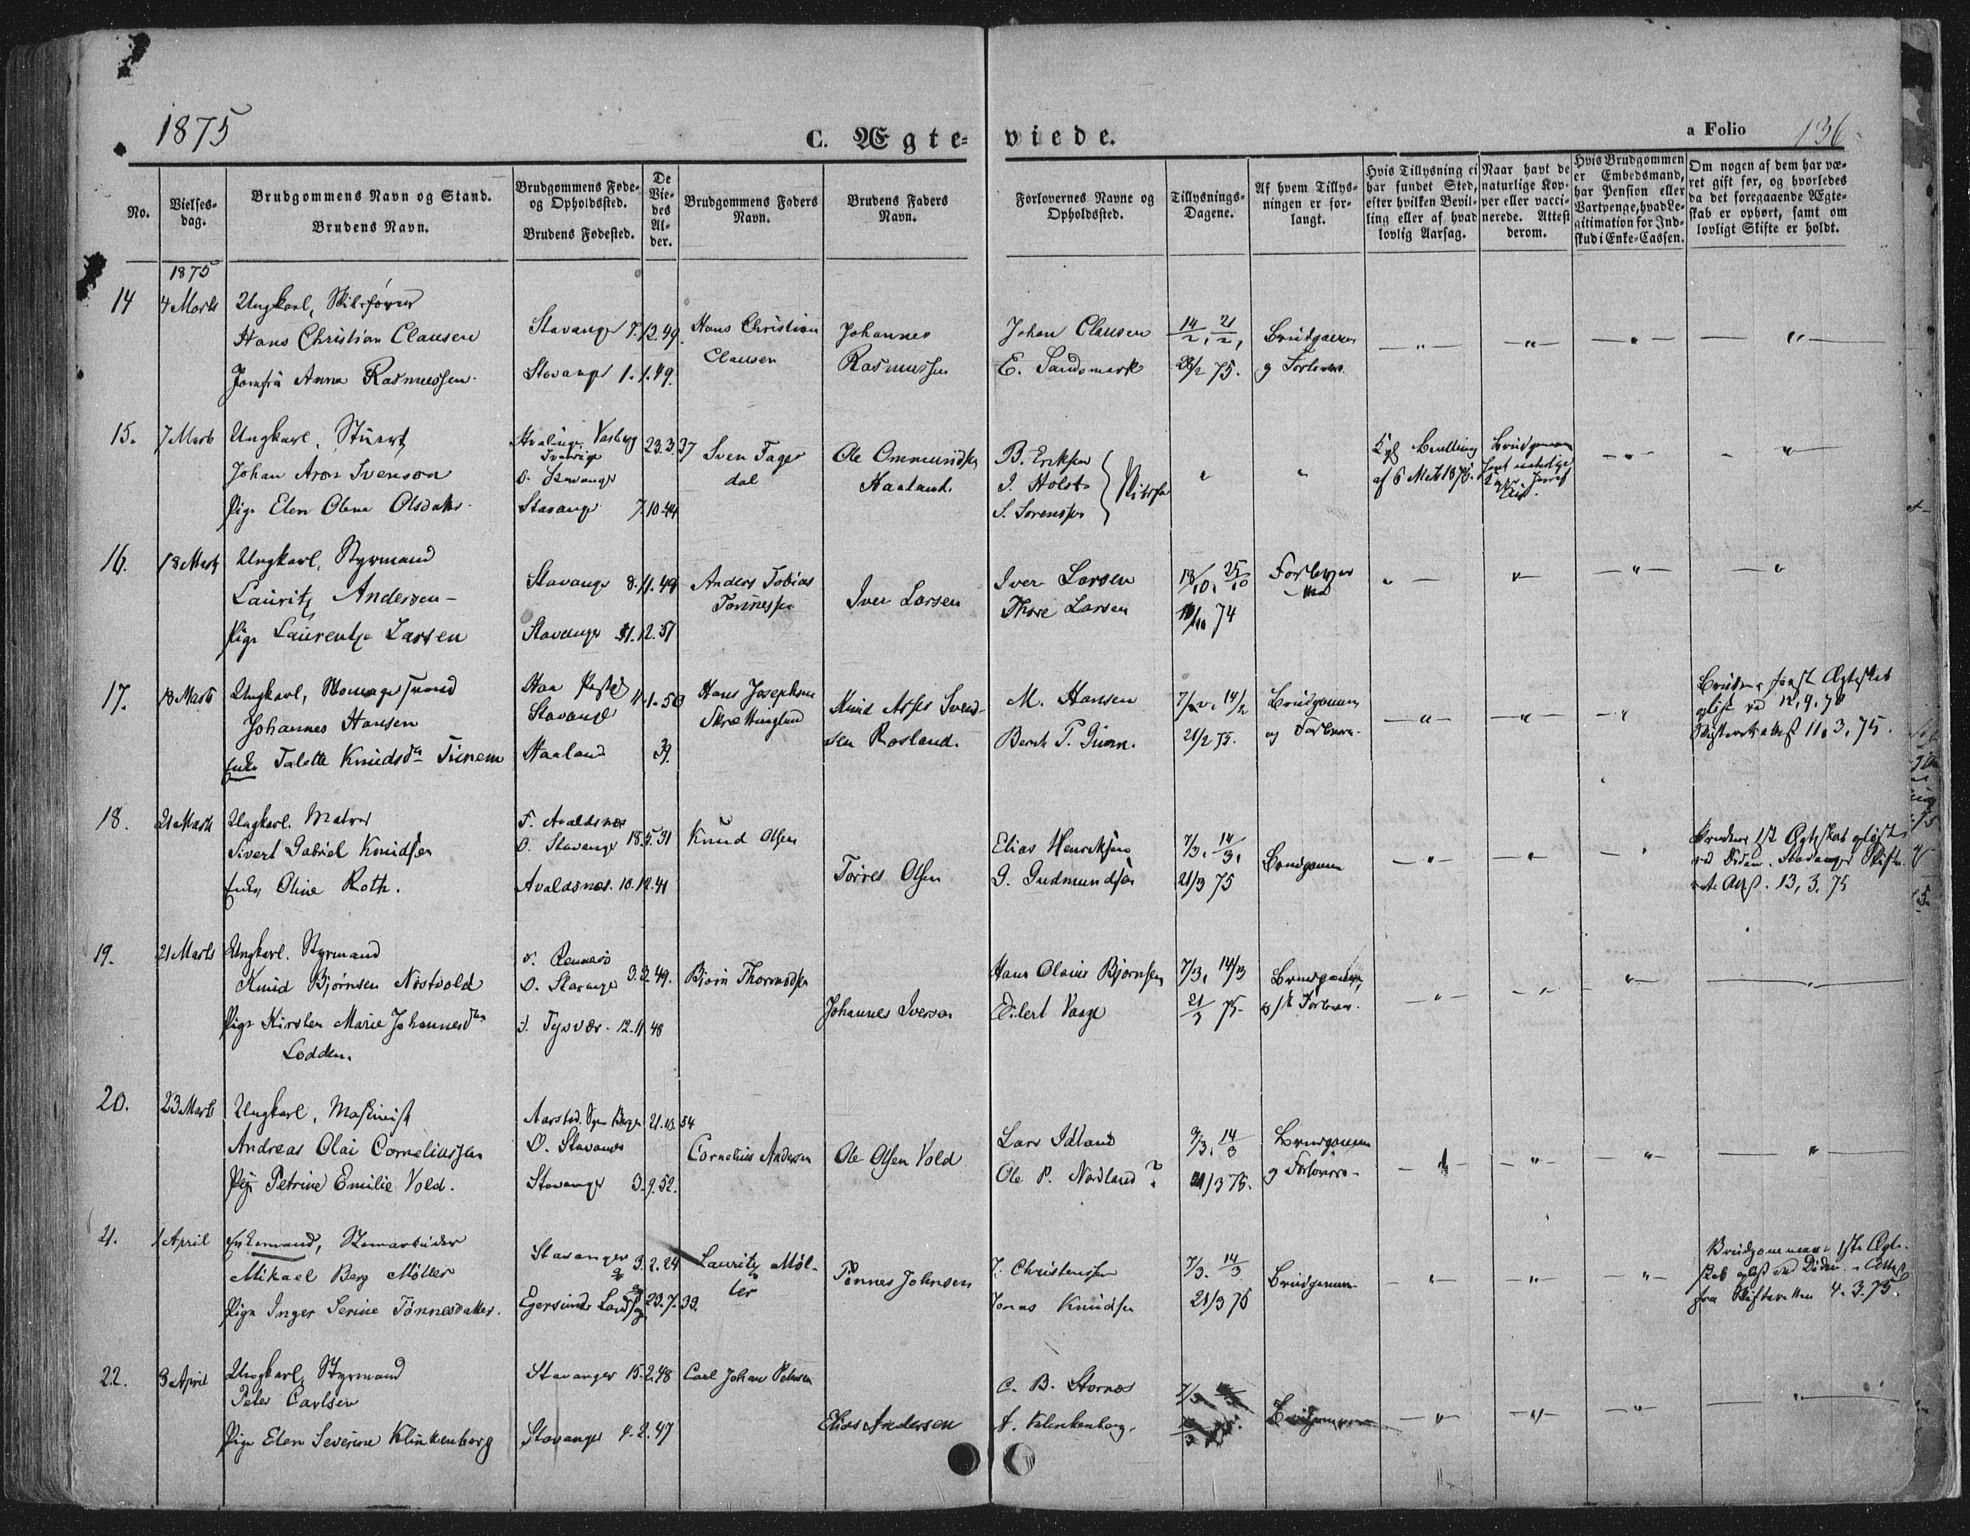 1875
C. Ægte-
viede.
a Folio
136
No.
Vielses-
dag.
Brudgommens Navn og Stand.
Brudens Navn.
Brudgommens Føde-
og Opholdssted.
Brudens Fødested.
De
Vie-
des
Al-
der.
Brudgommens Faders
Navn.
Brudens Faders
Navn.
Forlovernes Navne og
Opholdssted.
Tillysnings-
Dagene.
Af hvem Tillys-
ningen er for-
langt.
Hvis Tillysning ei
har fundet Sted,
efter hvilken Bevil-
ling eller af hvad
lovlig Aarsag.
Naar havt de
naturlige Kop-
per eller vacci-
nerede. Attest
derom.
Hvis Brudgommen
er Embedsmand,
har Pension eller
Vartpenge, hvad Le-
gitimation for Ind-
skud i Enke-Cassen.
Om nogen af dem har væ-
ret gift før, og hvorledes
da det foregaaende Ægte-
skab er ophørt, samt om
lovligt Skifte er holdt.
1875
14
4 Marts
Ungkarl, Skibsfører
Hans Christian Clausen
Jomfru Anna Rasmussen.
Stavanger 7.12.49.
Stavanger 1.1.49.
Hans Christian
Clausen
Johannes
Rasmussen
Johan Clausen
E. Sandsmark
14/2, 21/2,
28/2 75.
Brudgommen
og Forlovere.
15.
7 Marts
Ungkarl, Stuert
Johan Aron Svenson
Pige Elen Olene Olsdatter.
Varberg 23.3.37
Sverige
O. Stavanger
Stavanger 7.10.44
Sven Fager
dal
Ole Ommundsen
Haaland.
B. Eriksen
J. Holst
S. Sorensen
Kgl. Bevilling
af 6 Marts 1875.
Brudgommen
havt naturlige
16.
18 Marts
Ungkarl, Styrmand
Lauritz Andersen
Pige Laurentze Larsen
Stavanger 8.11.49
Stavanger 31.12.51
Anders Tobias
Tønnessen
Iver Larsen
Iver Larsen
Thore Larsen
18/10, 25/10
1/11 74
Forlover
17.
18 Marts
Ungkarl,
Johannes Hansen
Enke Talette Knudsdtr Tunem
Haa
Stavanger 11.1.50
Haaland 39.
Hans Josephsen
Skrættingland
Knud Asser Svend-
sen Rosland.
M. Hansen
Bernt T.
7/2, 14/2
21/2 75.
Brudgommen
og Forlovere.
Brudens første Ægteskab
12.9.70
Skifteattest 11.3.75.
18.
21 Marts
Ungkarl. Matros
Sivert Gabriel Knudsen
Enke Oline Roth.
F. Avaldsnes
O. Stavanger 18.5.31
Avaldsnes. 10.12.41
Knud Olsen
Torres Olsen
Elias Henriksen
G. Gudmundsen
7/3, 14/3,
21/3 75
Brudgommen
Brudens 1ste Ægteskab opløst
ved Døden. Stavanger Skifte-
rets Attest. 13.3.75
19.
21 Marts
Ungkarl. Styrmand
Knud Bjørnsen Nostvold
Pige Kirsten Marie Johannesdtr
Lodden.
F. Rennesø
O. Stavanger 3.3.49.
F. Tysvær. 12.11.48
Bjørn Thormodsen
Johannes Iversen
Hans Olaus Bjørnsen
Eilert Vaage
7/3, 14/3
21/3 75.
Brudgommen,
Forlover.
20.
23 Marts
Ungkarl, Maskinist
Andreas Olai Corneliussen
Pige Petrine Emilie Vold.
Aarstad. Sogn Bergen 21.10.54
O. Stavanger
Stavanger 3.9.52.
Cornelius Andersen
Ole Olsen Vold
Lars Idland
Ole P. Nordland?
7/3, 14/3
21/3 75.
Brudgommen
og Forlovere
21.
1 April
Enkemand, Stenarbeider
Mikael Berg Möller
Pige Inger Serine Tønnesdatter.
Stavanger 3.2.24
Egersunds Landsogn 23.7.33.
Lauritz Möl-
ler
Tønnes Johnsen
J. Christensen
Jonas Knudsen
7/3. 14/3
21/3 75
Brudgommen
Brudgommens 1ste Ægte-
skab opløst ved Døden. Attest
fra Skifteretten 4.3.75.
22.
3 April
Ungkarl, Styrmand
Peter Carlsen
Pige Elen Severine Klinkenberg
Stavanger 15.2.48
Stavanger 4.2.47
Carl Johan Petersen
Elias Andersen
C. B. Stornes
A. Klinkenberg.
7/3
Brudgommen